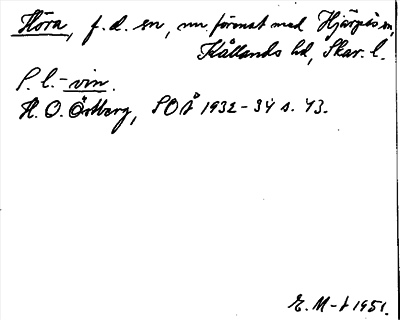 Flöra, f. d. sn, nu förenat med Hjärpås sn,
Kållands hd, Skar. l.
S. l. - vin.
H. O. Östberg, SOÅ 1932-34 s. 43.
E. M-t 1951.